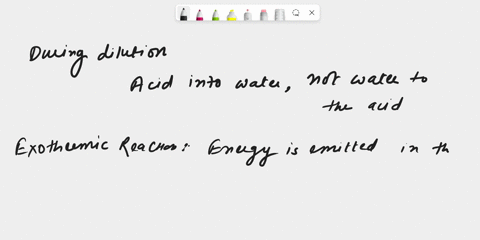 During dilution
Acid into water, not water to
the acid
Exothermic Reaction: Energy is emitted in th